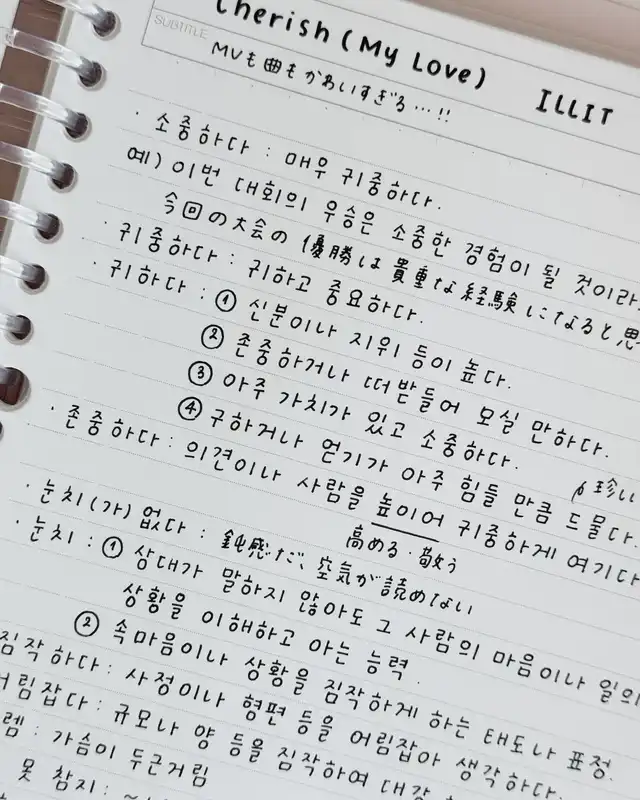 Cherish (My Love) ILLIT
SUBTITLE MVも曲もかわいすぎる…!!
· 소중하다 : 매우 귀중하다.
예) 이번 대회의 우승은 소중한 경험이 될 것이라
今回の大会の優勝は貴重な経験になると思
· 귀중하다 : 귀하고 중요하다.
· 귀하다 : ① 신분이나 지위 등이 높다.
② 존중하거나 떠받들어 모실 만하다.
③ 아주 가치가 있고 소중하다.
④ 구하거나 얻기가 아주 힘들 만큼 드물다.
珍しい
· 존중하다 : 의견이나 사람을 높이어 귀중하게 여기다
高める・敬う
· 눈치(가) 없다 : 鈍感だ、空気が読めない
· 눈치 : ① 상대가 말하지 않아도 그 사람의 마음이나 일의
상황을 이해하고 아는 능력.
② 속마음이나 상황을 짐작하게 하는 태도나 표정.
짐작하다 : 사정이나 형편 등을 어림잡아 생각하다.
어림잡다 : 규모나 양 등을 짐작하여 대강
렘 : 가슴이 두근거림
못 참지 :